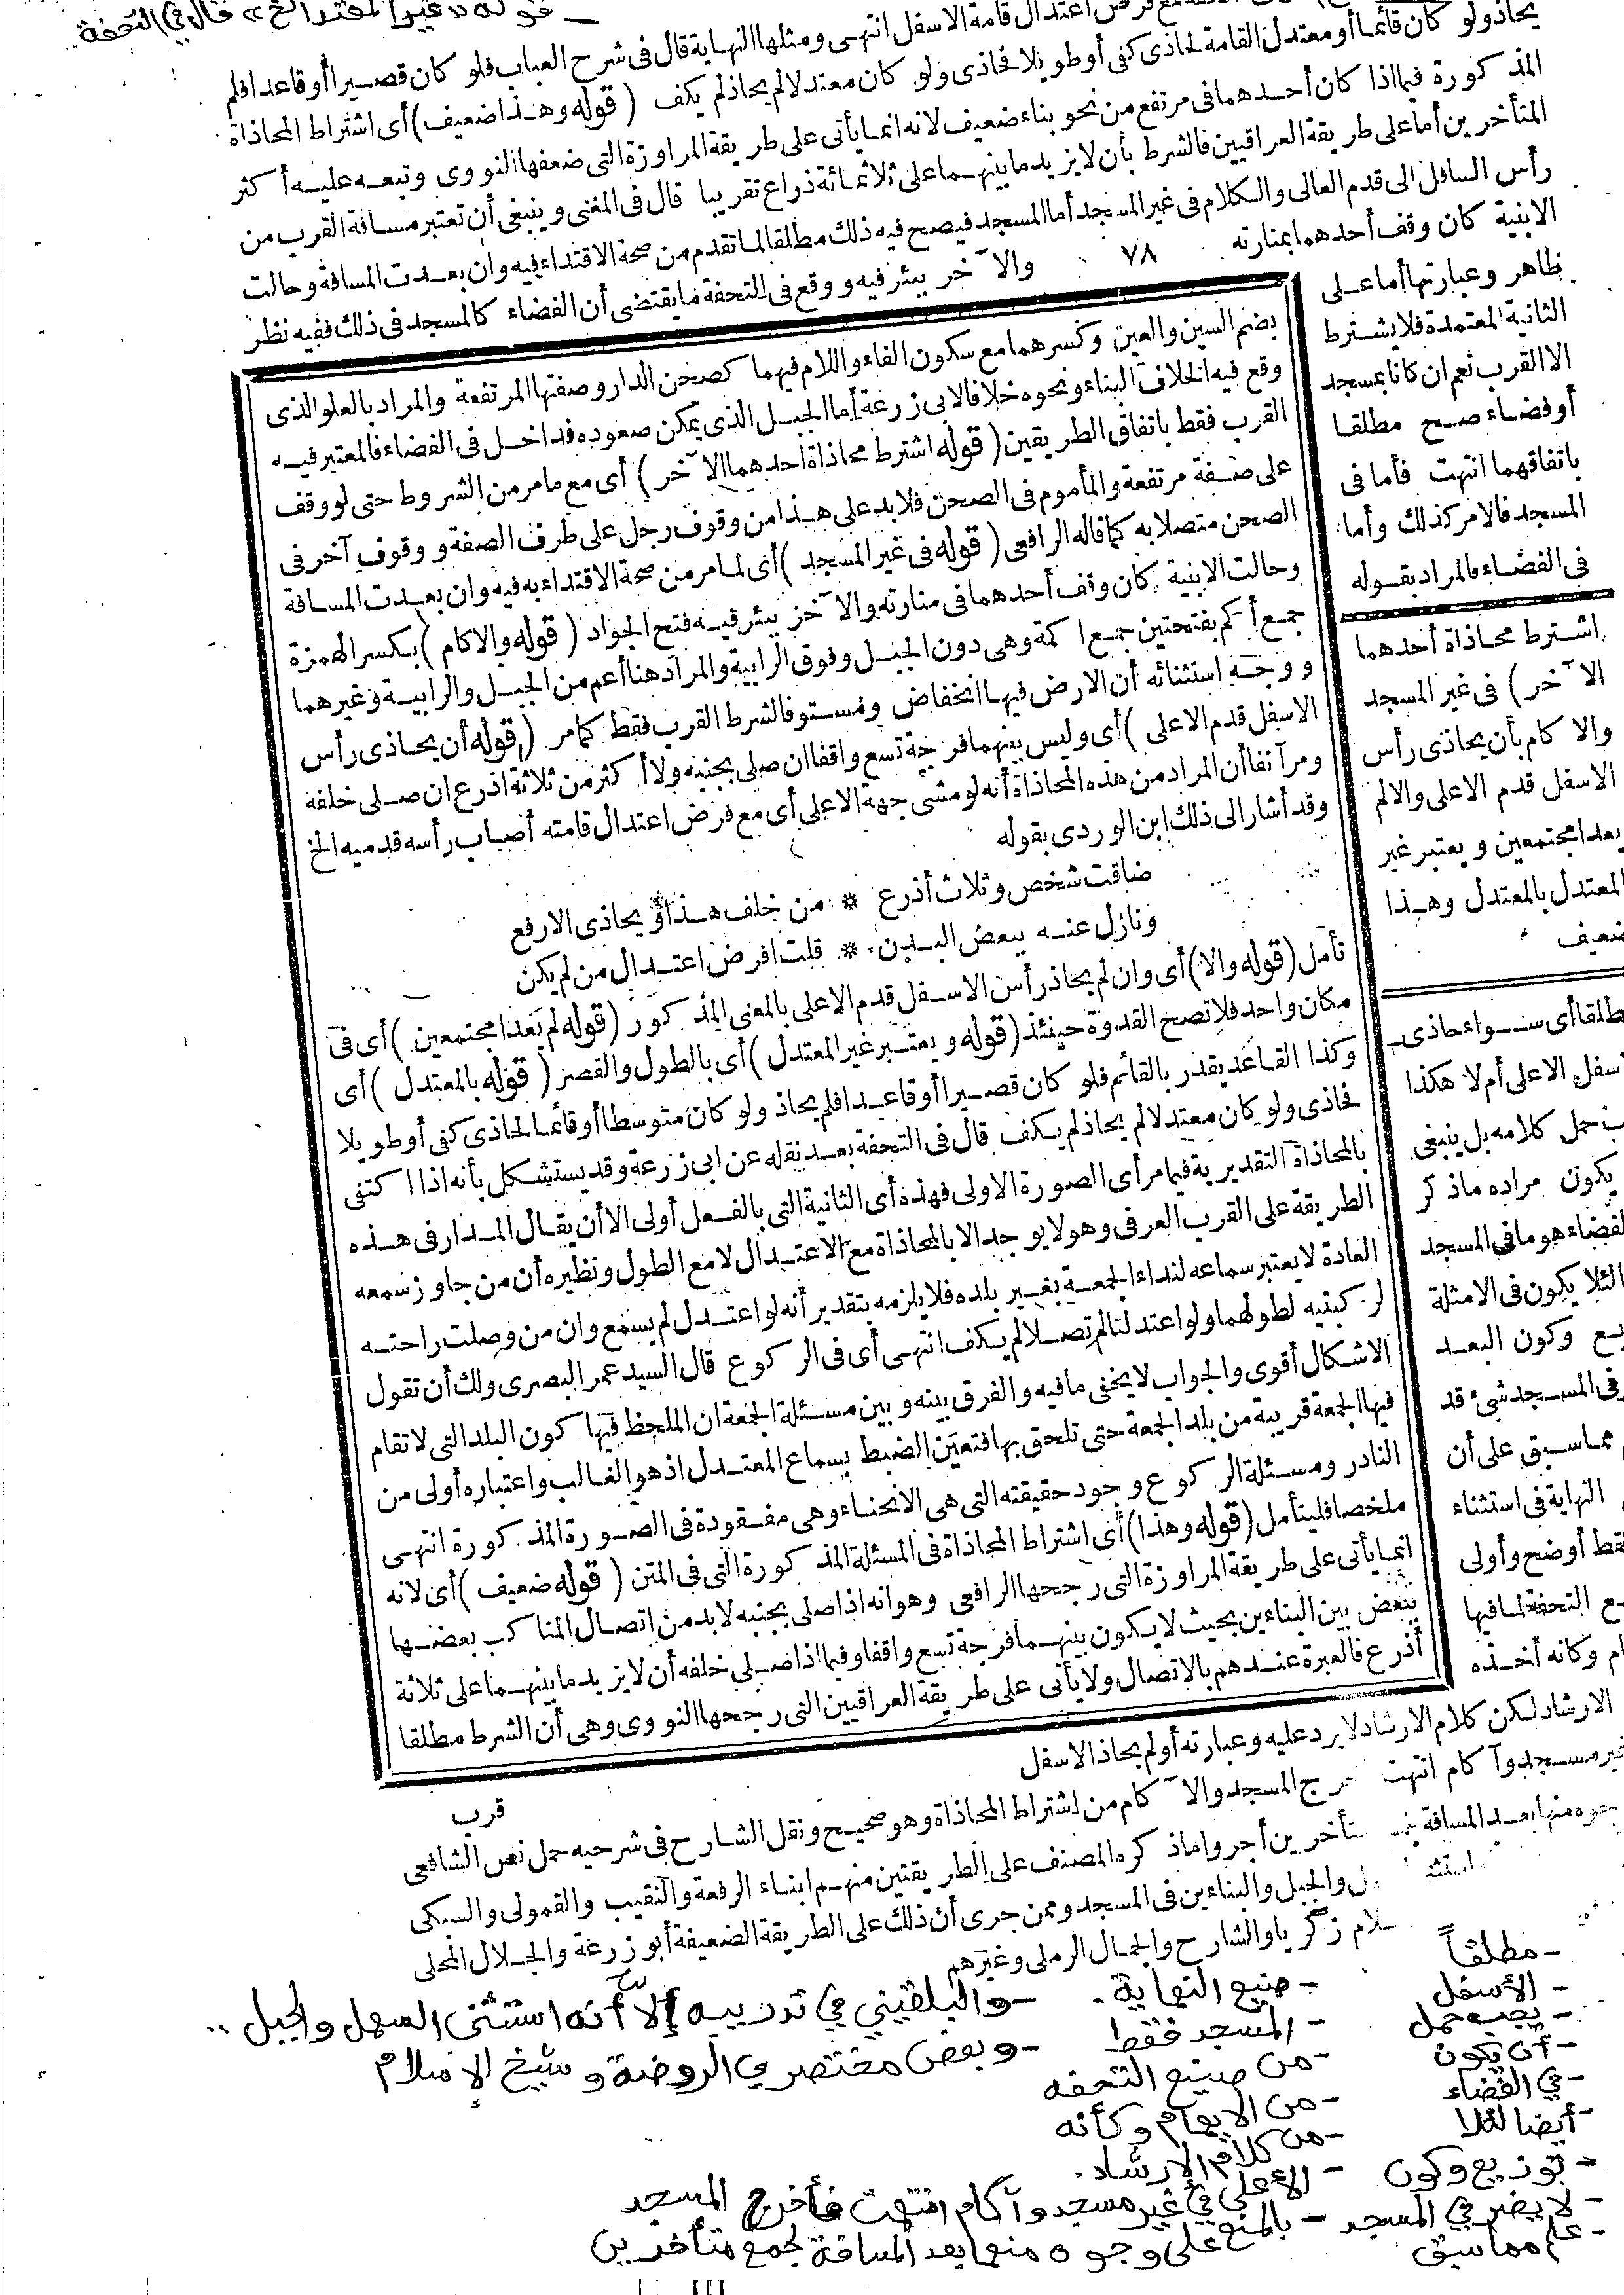 قوله «غير المقتدر الخ» قال في التحفة
يحاذ ولو كان قائما أو معتدل القامة لحاذى كفى أو طويلا فحاذى ولو كان معتدلا لم يحاذ لم يكف (قوله وهذا ضعيف) أى اشتراط المحاذاة
مع فرض اعتدال قامة الاسفل انتهى ومثلها النهاية قال فى شرح العباب فلو كان قصيرا أو قاعدا فلم
المذكورة فيما اذا كان أحدهما فى مرتفع من نحو بناء ضعيف لانه انما يأتى على طريقة المراوزة التى ضعفها النووى وتبعه عليه أكثر
المتأخرين أما على طريقة العراقيين فالشرط بأن لا يزيد ما بينهما على ثلاثمائة ذراع تقريبا قال فى المغنى وينبغى أن تعتبر مسافة القرب من
رأس السافل الى قدم العالى والكلام فى غير المسجد أما المسجد فيصح فيه ذلك مطلقا لما تقدم من صحة الاقتداء فيه وان بعدت المسافة وحالت
الابنية كان وقف أحدهما بمنارته ٧٨ والآخر ببئر فيه ووقع فى التحفة ما يقتضى أن الفضاء كالمسجد فى ذلك ففيه نظر
ظاهر وعبارتها أما على
الثانية المعتمدة فلا يشترط
الا القرب نعم ان كانا بمسجد
أو فضاء صح مطلقا
باتفاقهما انتهت فأما فى
المسجد فالامر كذلك وأما
فى الفضاء فالمراد بقوله
اشترط محاذاة أحدهما
الآخر) فى غير المسجد
والاكام بأن يحاذى رأس
الاسفل قدم الاعلى والالم
يعدا مجتمعين ويعتبر غير
المعتدل بالمعتدل وهذا
ضعيف
بضم السين والعين وكسرهما مع سكون الفاء واللام فيهما كصحن الدار وصفتها المرتفعة والمراد بالعلو الذى
وقع فيه الخلاف البناء ونحوه خلافا لابى زرعة أما الجبل الذى يمكن صعوده فداخل فى الفضاء فالمعتبر فيه
القرب فقط باتفاق الطريقين (قوله اشترط محاذاة أحدهما الآخر) أى مع مامر من الشروط حتى لو وقف
على صفة مرتفعة والمأموم فى الصحن فلابد على هذا من وقوف رجل على طرف الصفة ووقوف آخر فى
الصحن متصلا به كما قاله الرافعى (قوله فى غير المسجد) أى لما مر من صحة الاقتداء به فيه وان بعدت المسافة
وحالت الابنية كان وقف أحدهما فى منارته والآخر ببئر فيه فتح الجواد (قوله والاكام) بكسر الهمزة
جمع أكم بفتحتين جمع اكمة وهى دون الجبل وفوق الرابية والمراد هنا أعم من الجبل والرابية وغيرهما
ووجه استثنائه أن الارض فيها انخفاض ومستو فالشرط القرب فقط كما مر (قوله أن يحاذى رأس
الاسفل قدم الاعلى) أى وليس بينهما فرجة تسع واقفا ان صلى بجنبه ولا أكثر من ثلاثة اذرع ان صلى خلفه
ومر آنفا أن المراد من هذه المحاذاة أنه لو مشى جهة الاعلى أى مع فرض اعتدال قامته أصاب رأسه قدميه الخ
وقد أشار الى ذلك ابن الوردى بقوله
ضاقت شخص وثلاث أذرع * من خلف هذا أو يحاذى الارفع
ونازل عنه ببعض البدن * قلت افرض اعتدال من لم يكن
تأمل (قوله والا) أى وان لم يحاذ رأس الاسفل قدم الاعلى بالمعنى المذكور (قوله لم يعدا مجتمعين) أى فى
مكان واحد فلا تصح القدوة حينئذ (قوله ويعتبر غير المعتدل) أى بالطول والقصر (قوله بالمعتدل) أى
وكذا القاعد يقدر بالقائم فلو كان قصيرا أو قاعدا فلم يحاذ ولو كان متوسطا أو قائما لحاذى كفى أو طويلا
فحاذى ولو كان معتدلا لم يحاذ لم يكف قال فى التحفة بعد نقله عن ابى زرعة وقد يستشكل بأنه اذا اكتفى
بالمحاذاة التقديرية فيما مر أى الصورة الاولى فهذه أى الثانية التى بالفعل أولى الا أن يقال المدار فى هذه
الطريقة على القرب العرفى وهو لا يوجد الا بالمحاذاة مع الاعتدال لا مع الطول ونظيره أن من جاوز سمعه
العادة لا يعتبر سماعه لنداء الجمعة بغير بلده فلا يلزمه بتقدير أنه لو اعتدل لم يسمع وان من وصلت راحته
لركبتيه لطولهما ولو اعتدلتا لم تصلا لم يكف انتهى أى فى الركوع قال السيد عمر البصرى ولك أن تقول
الاشكال أقوى والجواب لا يخفى ما فيه والفرق بينه وبين مسئلة الجمعة ان الملحظ فيها كون البلد التى لا تقام
فيها الجمعة قريبة من بلد الجمعة حتى تلحق بها فتعين الضبط بسماع المعتدل اذ هو الغالب واعتباره أولى من
النادر ومسئلة الركوع وجود حقيقته التى هى الانحناء وهى مفقودة فى الصورة المذكورة انتهى
ملخصا فليتأمل (قوله وهذا) أى اشتراط المحاذاة فى المسئلة المذكورة التى فى المتن (قوله ضعيف) أى لانه
انما يأتى على طريقة المراوزة التى رجحها الرافعى وهو انه اذا صلى بجنبه لابد من اتصال المناكب بعضها
ببعض بين البناءين بحيث لا يكون بينهما فرجة تسع واقفا وفيما اذا صلى خلفه أن لا يزيد ما بينهما على ثلاثة
أذرع فالعبرة عندهم بالاتصال ولا يأتى على طريقة العراقيين التى رجحها النووى وهى أن الشرط مطلقا
قرب
طلقا أى سواء حاذى
سفل الاعلى أم لا هكذا
ب حمل كلامه بل ينبغى
يكون مراده ماذكر
لفضاء هو ما فى المسجد
الئلا يكون فى الامثلة
يع وكون البعد
فى المسجد شئ قد
مما سبق على أن
النهاية فى استثناء
قط أوضح وأولى
ع التحفة لما فيها
ام وكانه أخذه
الارشاد لكن كلام الارشاد لا يرد عليه وعبارته أو لم يحاذ الاسفل
غير مسجد وآكام انتهت رج المسجد والآكام من اشتراط المحاذاة وهو صحيح ونقل الشارح فى شرحيه حمل نص الشافعى
جوه منها بعد المسافة تأخرين أجروا ماذكره المصنف على الطريقتين منهم ابناء الرفعة والنقيب والقمولى والسبكى
استثنى ل والجبل والبناءين فى المسجد وممن جرى أن ذلك على الطريقة الضعيفة أبو زرعة والجلال المحلى
سلام زكريا والشارح والجمال الرملى وغيرهم
- مطلقاً
- الأسفل
- يجب حمل
- أن يكون
- في الفضاء
- أيضا لئلا
- توزيع وكون
- لا يضر في المسجد
- علم مما سبق
- صنيع النهاية
- المسجد فقط
- من صنيع التحفه
- من الايهام وكأنه
- من كلام الإرشاد
- الأعلى في غير مسجد وآكام انتهت فأخرج المسجد
- بالمنع على وجوه منها بعد المسافة لجمع متأخرين
- والبلقيني في تدريبه إلا أنه استثنى السهل والجبل
- وبعض مختصري الروضة وشيخ الإسلام